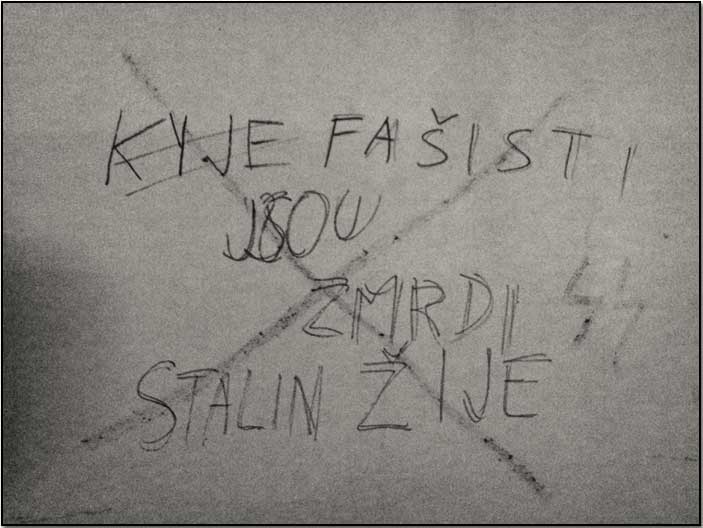 KYJE FAŠISTI
JSOU
ZMRDI
STALIN ŽIJE